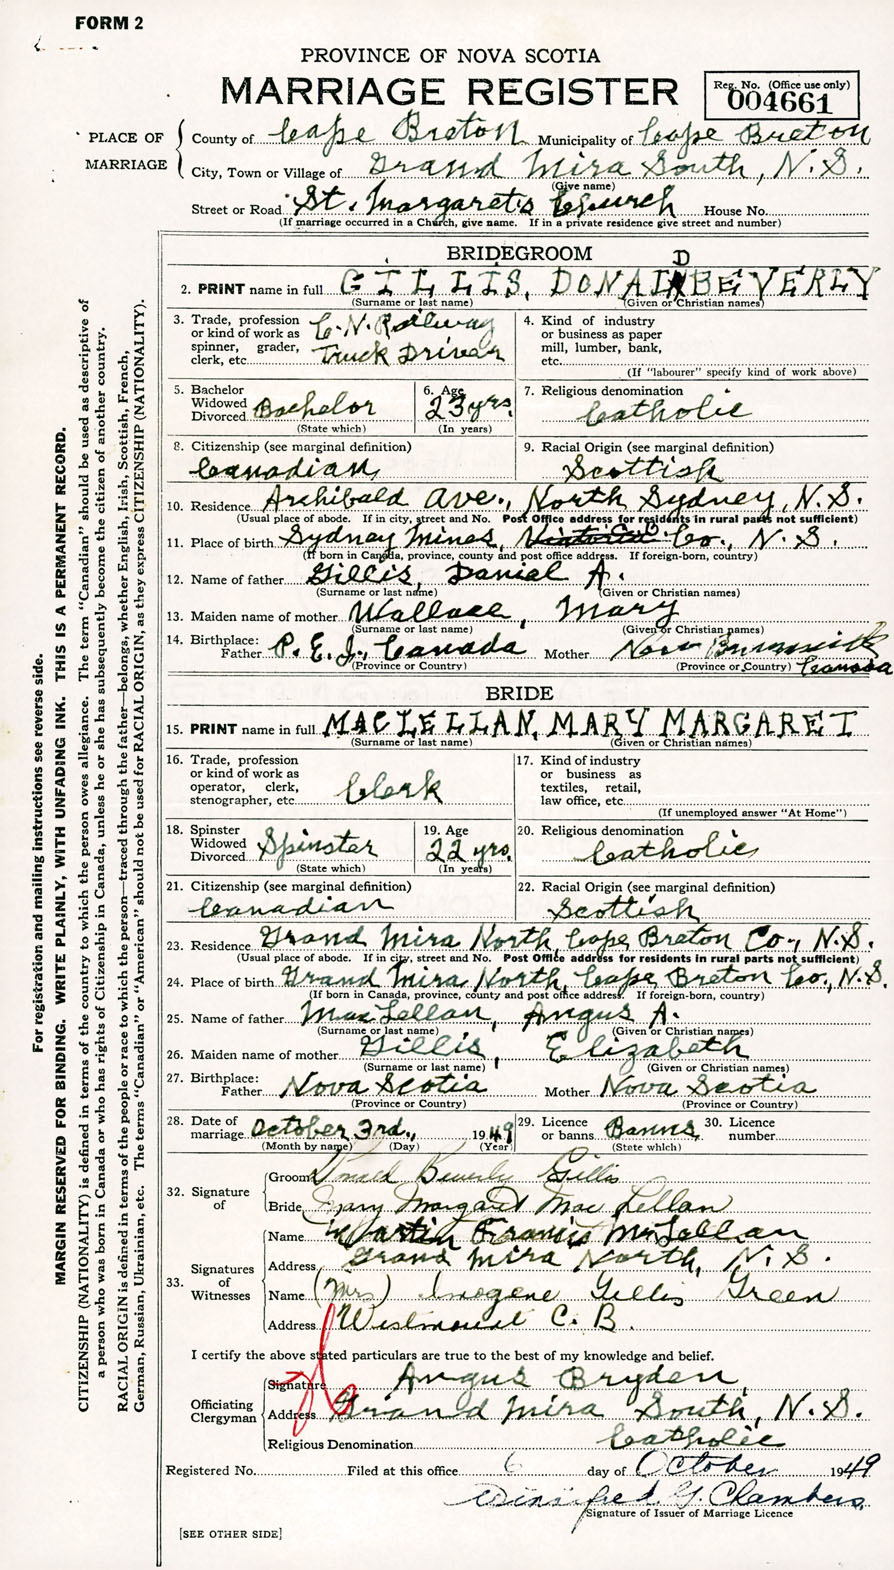 FORM 2
PROVINCE OF NOVA SCOTIA
MARRIAGE REGISTER
Reg. No. (Office use only)
004661
PLACE OF MARRIAGE
County of Cape Breton Municipality of Cape Breton
City, Town or Village of Grand Mira South, N.S.
(Give name)
Street or Road St. Margaret's Church House No.
(If marriage occurred in a Church, give name. If in a private residence give street and number)
BRIDEGROOM
2. PRINT name in full GILLIS, DONALD BEVERLY
(Surname or last name) (Given or Christian names)
3. Trade, profession or kind of work as spinner, grader, clerk, etc. C.N. Railway Truck Driver
4. Kind of industry or business as paper mill, lumber, bank, etc.
(If "labourer" specify kind of work above)
5. Bachelor Widowed Divorced Bachelor
(State which)
6. Age 23 yrs.
(In years)
7. Religious denomination Catholic
8. Citizenship (see marginal definition) Canadian
9. Racial Origin (see marginal definition) Scottish
10. Residence Archibald Ave., North Sydney, N.S.
(Usual place of abode. If in city, street and No. Post Office address for residents in rural parts not sufficient)
11. Place of birth Sydney Mines, C.B. Co., N.S.
(If born in Canada, province, county and post office address. If foreign-born, country)
12. Name of father Gillis, Daniel A.
(Surname or last name) (Given or Christian names)
13. Maiden name of mother Wallace, Mary
(Surname or last name) (Given or Christian names)
14. Birthplace: Father P.E.I., Canada Mother New Brunswick Canada
(Province or Country) (Province or Country)
BRIDE
15. PRINT name in full MACLELLAN, MARY MARGARET
(Surname or last name) (Given or Christian names)
16. Trade, profession or kind of work as operator, clerk, stenographer, etc. Clerk
17. Kind of industry or business as textiles, retail, law office, etc.
(If unemployed answer "At Home")
18. Spinster Widowed Divorced Spinster
(State which)
19. Age 22 yrs.
(In years)
20. Religious denomination Catholic
21. Citizenship (see marginal definition) Canadian
22. Racial Origin (see marginal definition) Scottish
23. Residence Grand Mira North, Cape Breton Co., N.S.
(Usual place of abode. If in city, street and No. Post Office address for residents in rural parts not sufficient)
24. Place of birth Grand Mira North, Cape Breton Co., N.S.
(If born in Canada, province, county and post office address. If foreign-born, country)
25. Name of father MacLellan, Angus A.
(Surname or last name) (Given or Christian names)
26. Maiden name of mother Gillis, Elizabeth
(Surname or last name) (Given or Christian names)
27. Birthplace: Father Nova Scotia Mother Nova Scotia
(Province or Country) (Province or Country)
28. Date of marriage October 3rd., 1949
(Month by name) (Day) (Year)
29. Licence or banns Banns
(State which)
30. Licence number
32. Signature of
Groom Donald Beverly Gillis
Bride Mary Margaret Mac Lellan
33. Signatures of Witnesses
Name Martin Francis McLellan
Address Grand Mira North, N.S.
Name (Mrs) Imogene Gillis Green
Address Westmount C.B.
I certify the above stated particulars are true to the best of my knowledge and belief.
Officiating Clergyman
Signature Angus Bryden
Address Grand Mira South, N.S.
Religious Denomination Catholic
Registered No. Filed at this office 6 day of October 1949
Winnifred G. Chambers
Signature of Issuer of Marriage Licence
[SEE OTHER SIDE]
For registration and mailing instructions see reverse side.
MARGIN RESERVED FOR BINDING. WRITE PLAINLY, WITH UNFADING INK. THIS IS A PERMANENT RECORD.
CITIZENSHIP (NATIONALITY) is defined in terms of the country to which the person owes allegiance. The term "Canadian" should be used as descriptive of
a person who was born in Canada or who has rights of Citizenship in Canada, unless he or she has subsequently become the citizen of another country.
RACIAL ORIGIN is defined in terms of the people or race to which the person—traced through the father—belongs, whether English, Irish, Scottish, French,
German, Russian, Ukrainian, etc. The terms "Canadian" or "American" should not be used for RACIAL ORIGIN, as they express CITIZENSHIP (NATIONALITY).